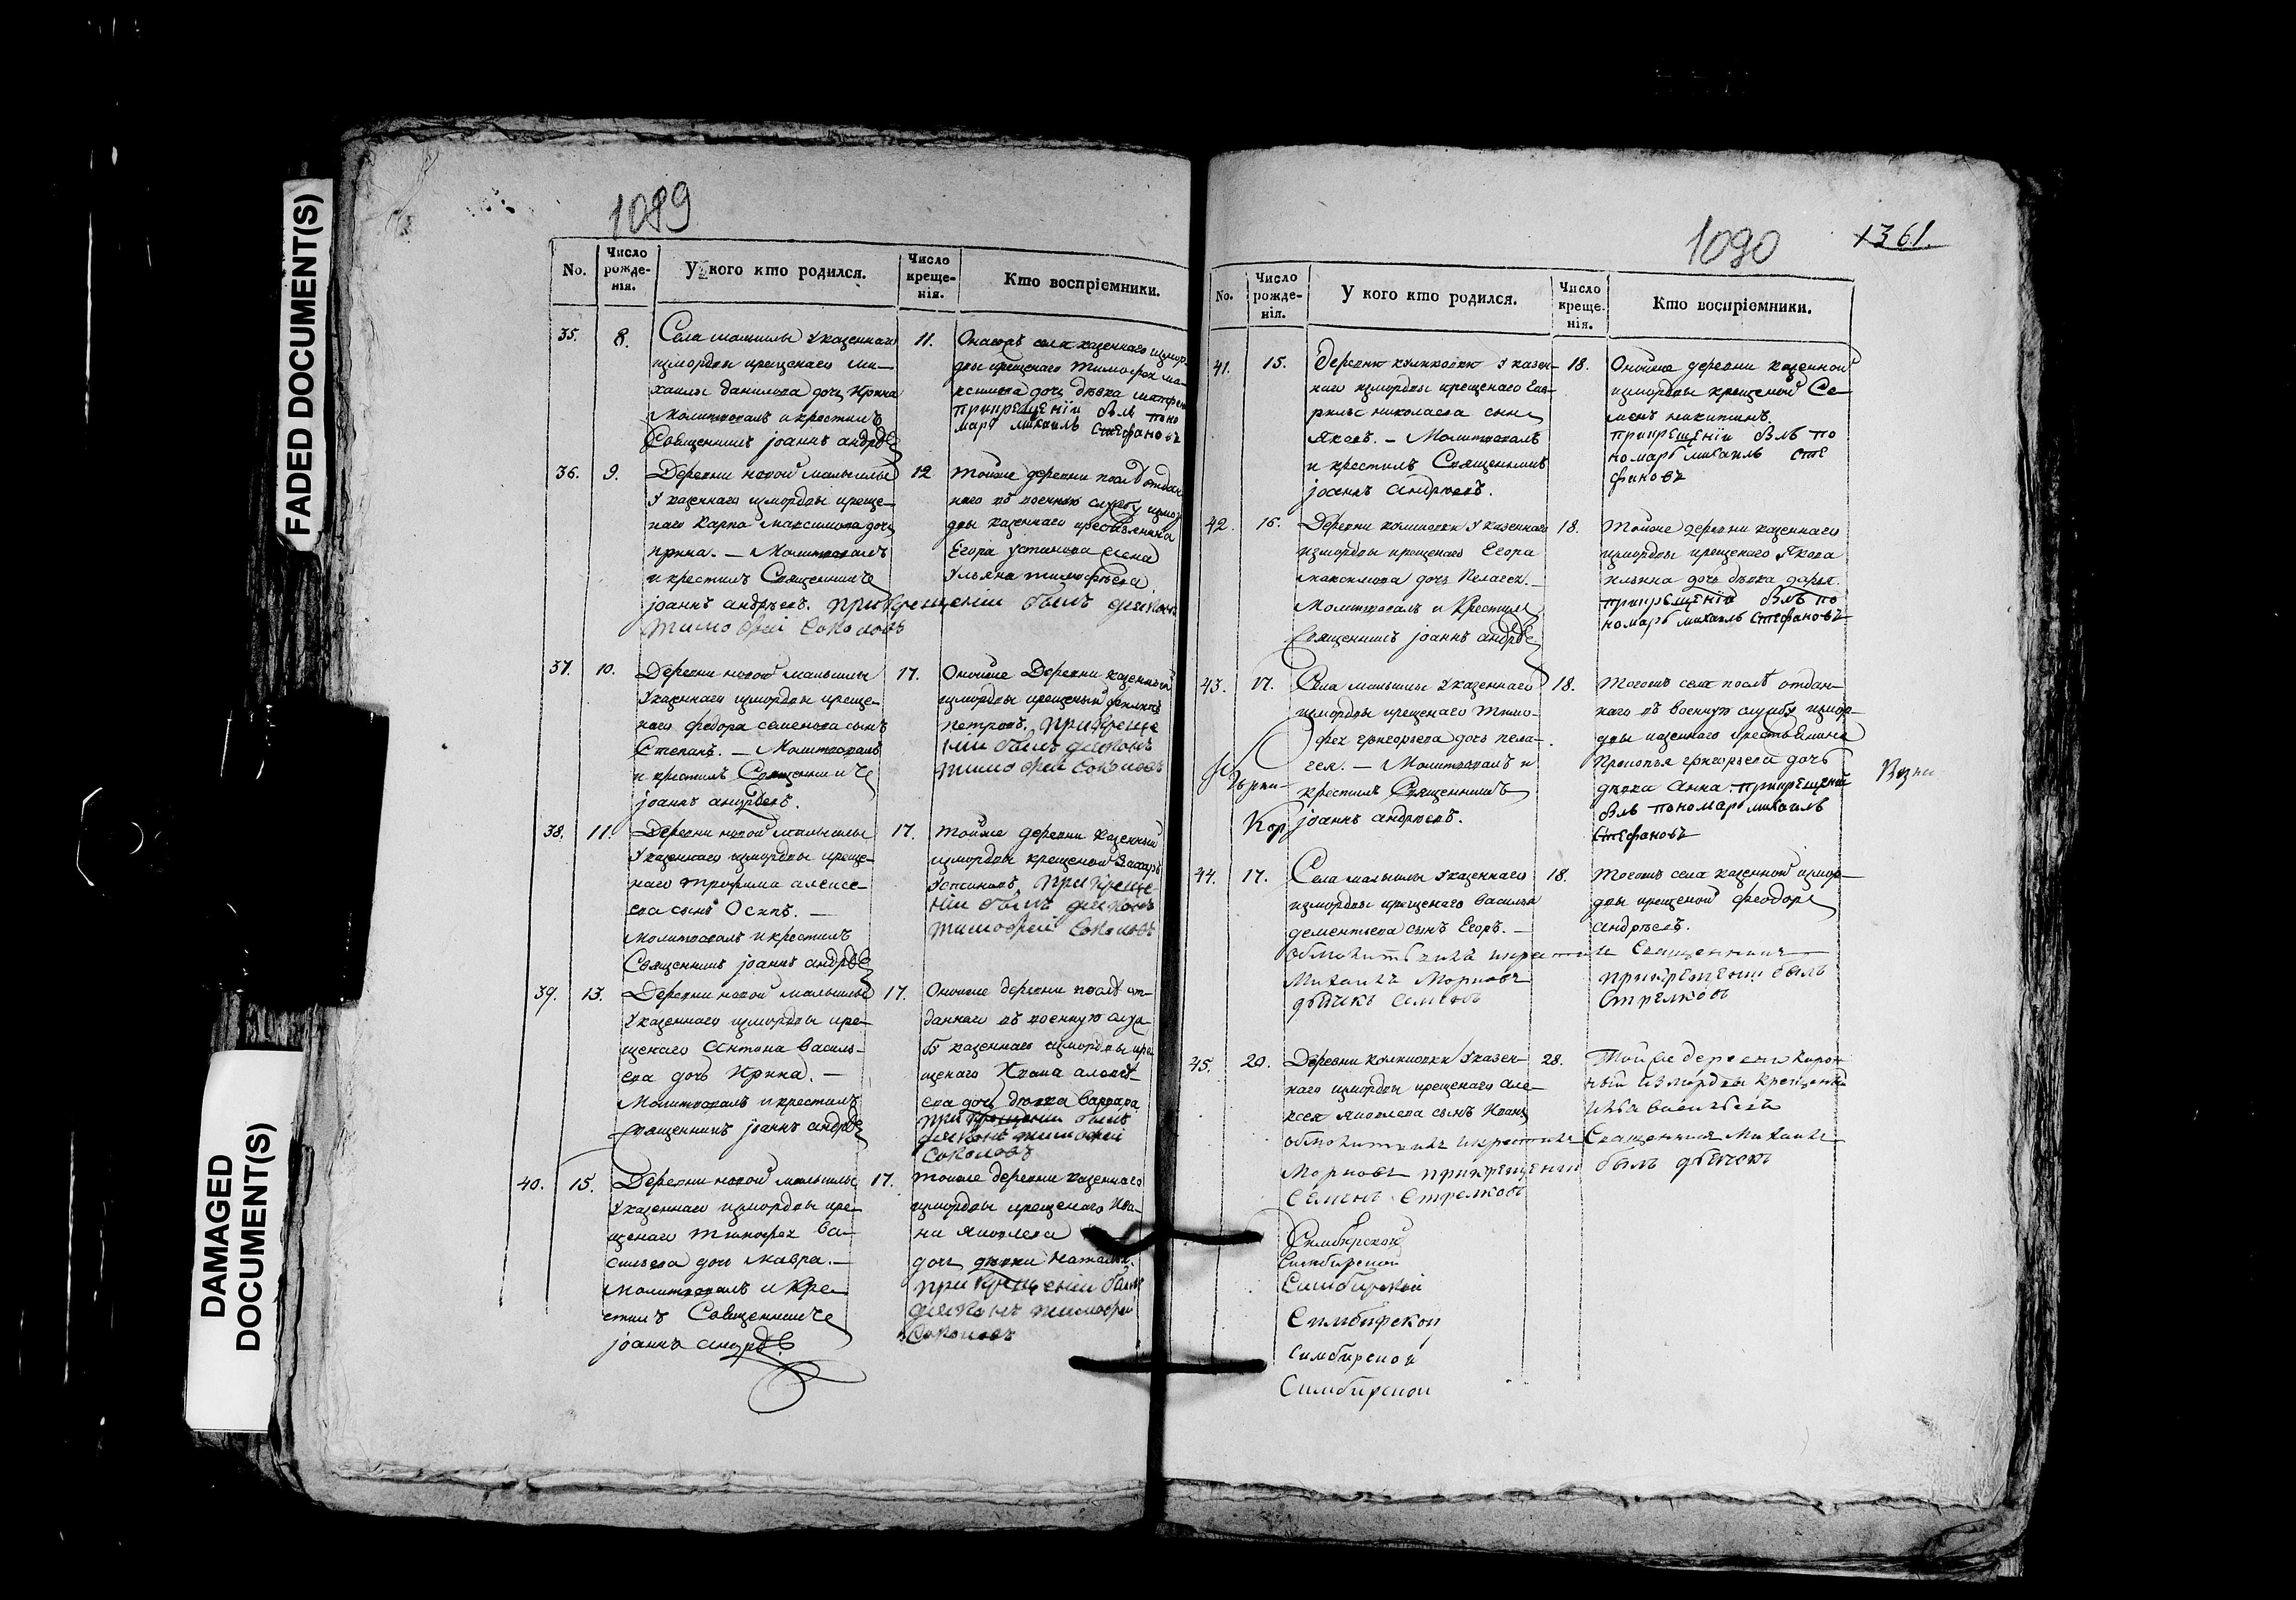 FADED DOCUMENT(S)
DAMAGED
DOCUMENT(S)
1089
No.
Число
рожде-
нія.
У кого кто родился.
Число
креще-
нія.
Кто воспріемники.
35.
8.
Села малыклы Указеннаго
измордвы крещенаго ми-
хаилы данилова дочь Ирина
Молитвовалъ и крестилъ
Священникъ јоаннъ андрѣе
11.
села казеннаго измор
двы крещенаго тимофея ма-
ксимова дочь дѣвка матрен
прикрещеніи былъ поно
марь михаилъ Стефановъ
36.
9.
Деревни новой малыклы
Указеннаго измордвы креще-
наго Карпа максимова дочь
ирина. — Молитвовалъ
и крестилъ Священниче
јоаннъ андрѣевъ. при крещеніи былъ дьяконъ
тимофей Соколовъ
12
Тойже деревни послѣ отдан
наго въ военную службу измор
двы казеннаго крестьянина
Егора устинова жена
Ульяна тимофѣева
37.
10.
Деревни новой малыклы
Указеннаго измордвы креще-
наго федора семенова сынъ
Степанъ. — Молитвовалъ
и крестилъ Священниче
јоаннъ андрѣевъ.
17.
Оноиже Деревни казенный
измордвы крещеный филипъ
петровъ. при креще
ніи былъ дьяконъ
тимофей Соколовъ
38.
11.
Деревни новой малыклы
Указеннаго измордвы креще-
наго трофима алексе-
ева сынъ Осипъ. —
Молитвовалъ и крестилъ
Священникъ јоаннъ андрѣе
17.
Тойже деревни казенный
измордвы крещеной Захаръ
Устиновъ. при креще
ніи былъ дьяконъ
тимофей Соколовъ
39.
13.
Деревни новой малыклы
Указеннаго измордвы кре-
щенаго антона василь-
ева дочь Ирина. —
Молитвовалъ и крестилъ
священникъ јоаннъ андрѣе
17.
Оноиже деревни послѣ от-
даннаго въ военную служ
бу казеннаго измордвы кре
щенаго Ивана алексѣ-
ева дочь дѣвка варвара
при крещеніи былъ
дьяконъ тимофей
Соколовъ
40.
15.
Деревни новой малыклы
Указеннаго измордвы кре-
щенаго тимофея ва-
сильева дочь мавра. —
молитвовалъ и кре-
стилъ Священниче
јоаннъ андрѣе
17.
Тоиже деревни казеннаго
измордвы крещенаго Ива-
на яковлева
дочь дѣвки наталья.
при крещеніи былъ
дьяконъ тимофей
Соколовъ
1090
1361.
No.
Число
рожде-
нія.
У кого кто родился.
Число
креще-
нія.
Кто воспріемники.
41.
15.
Деревни Указен-
наго измордвы крещенаго Гав-
рилы николаева сынъ
Яковъ. — Молитвовалъ
и крестилъ Священникъ
јоаннъ андрѣевъ.
18.
Оноиже деревни казенной
измордвы крещеной Се-
менъ никитинъ.
прикрещеніи былъ по
номарь михаилъ сте
фановъ
42.
16.
Деревни Указеннаго
измордвы крещенаго Егора
максимова дочь Пелагея. —
Молитвовалъ и Крестилъ
Священникъ јоаннъ андрѣе
18.
Тоиже деревни казеннаго
измордвы крещенаго Якова
ильина дочь дѣвка дарья.
прикрещеніи былъ по
номарь михаилъ Стефановъ
43.
17.
Села малыклы Указеннаго
измордвы крещенаго Тимо-
фея григорьева дочь пела-
гея. — Молитвовалъ и
крестилъ Священникъ
јоаннъ андрѣевъ.
Кор
18.
Тогожъ села послѣ отдан-
наго въ военную службу измор-
двы казеннаго крестьянина
Прокопья григорьева дочь
дѣвка анна. прикрещеніи
былъ пономарь михаилъ
Стефановъ
44.
17.
Села малыклы Указеннаго
измордвы крещенаго василья
дементьева сынъ Егоръ. —
Священникъ
Михаилъ Морновъ прикрещеніи былъ
дьячекъ семенъ Стрелковъ
18.
Тогожъ села казенной измор-
двы крещеной феодоръ
андрѣевъ.
45.
20.
Деревни Указен-
наго измордвы крещенаго але-
ксея яковлева сынъ Иванъ
Священникъ Михаилъ
Морновъ прикрещеніи былъ дьячекъ
Семенъ Стрелковъ
28.
Тойже деревни
измордвы крещеной
васильевъ
Симбирской
Симбирской
Симбирской
Симбирской
Симбирской
Симбирской